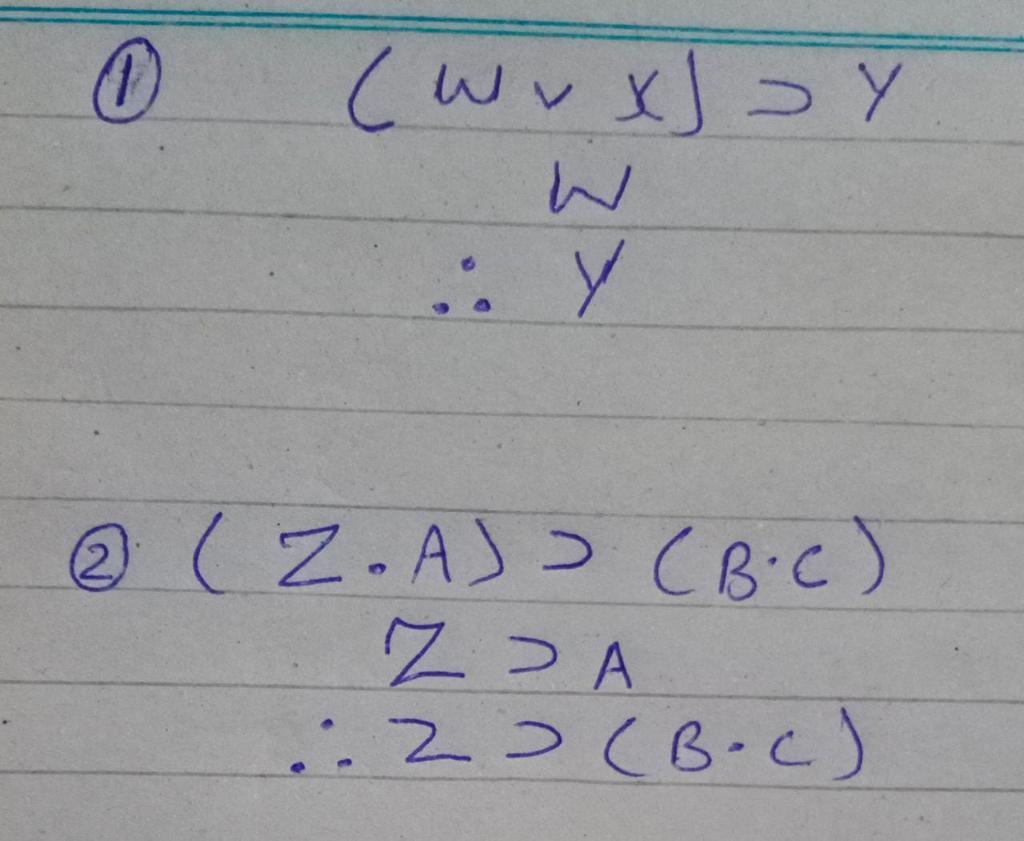 ① (W v X) ⊃ Y
W
∴ Y
② (Z . A) ⊃ (B · C)
Z ⊃ A
∴ Z ⊃ (B · C)